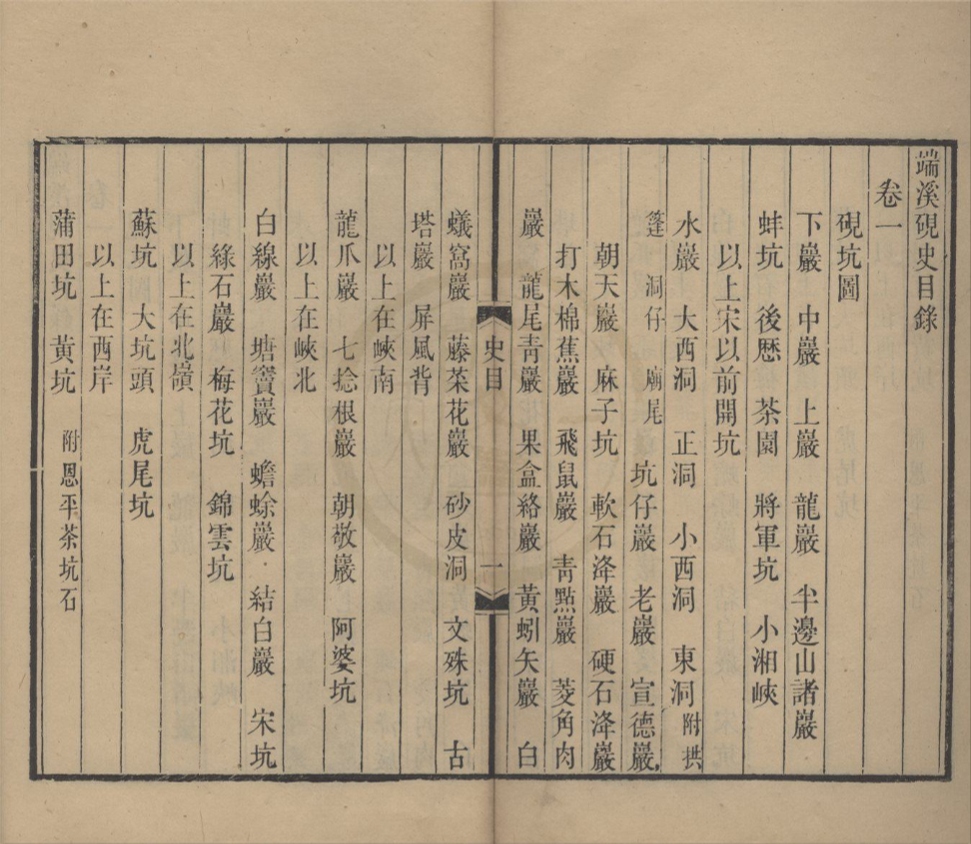 端溪硯史目錄
卷一
硯坑圖
下巖 中巖 上巖 龍巖 半邊山諸巖
蚌坑 後歷 茶園 將軍坑 小湘峽
以上宋以前開坑
水巖 大西洞 正洞 小西洞 東洞 附拱
篷 洞仔 廟尾 坑仔巖 老巖 宣德巖
朝天巖 麻子坑 軟石洚巖 硬石洚巖
打木棉蕉巖 飛鼠巖 青點巖 菱角肉
巖 龍尾青巖 果盒絡巖 黃蚓矢巖 白
史目 一
蟻窩巖 藤菜花巖 砂皮洞 文殊坑 古
塔巖 屏風背
以上在峽南
龍爪巖 七捻根巖 朝敬巖 阿婆坑
以上在峽北
白線巖 塘竇巖 蟾蜍巖 結白巖 宋坑
綠石巖 梅花坑 錦雲坑
以上在北嶺
蘇坑 大坑頭 虎尾坑
以上在西岸
蒲田坑 黃坑 附恩平茶坑石